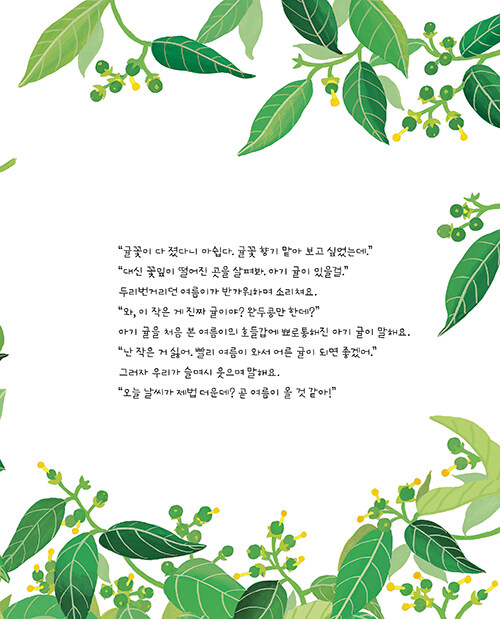 “귤꽃이 다 졌다니 아쉽다. 귤꽃 향기 맡아 보고 싶었는데.”
“대신 꽃잎이 떨어진 곳을 살펴봐. 아기 귤이 있을걸.”
두리번거리던 여름이가 반가워하며 소리쳐요.
“와, 이 작은 게 진짜 귤이야? 완두콩만 한데?”
아기 귤을 처음 본 여름이의 호들갑에 뾰로통해진 아기 귤이 말해요.
“난 작은 거 싫어. 빨리 여름이 와서 어른 귤이 되면 좋겠어.”
그러자 우리가 슬며시 웃으며 말해요.
“오늘 날씨가 제법 더운데? 곧 여름이 올 것 같아!”